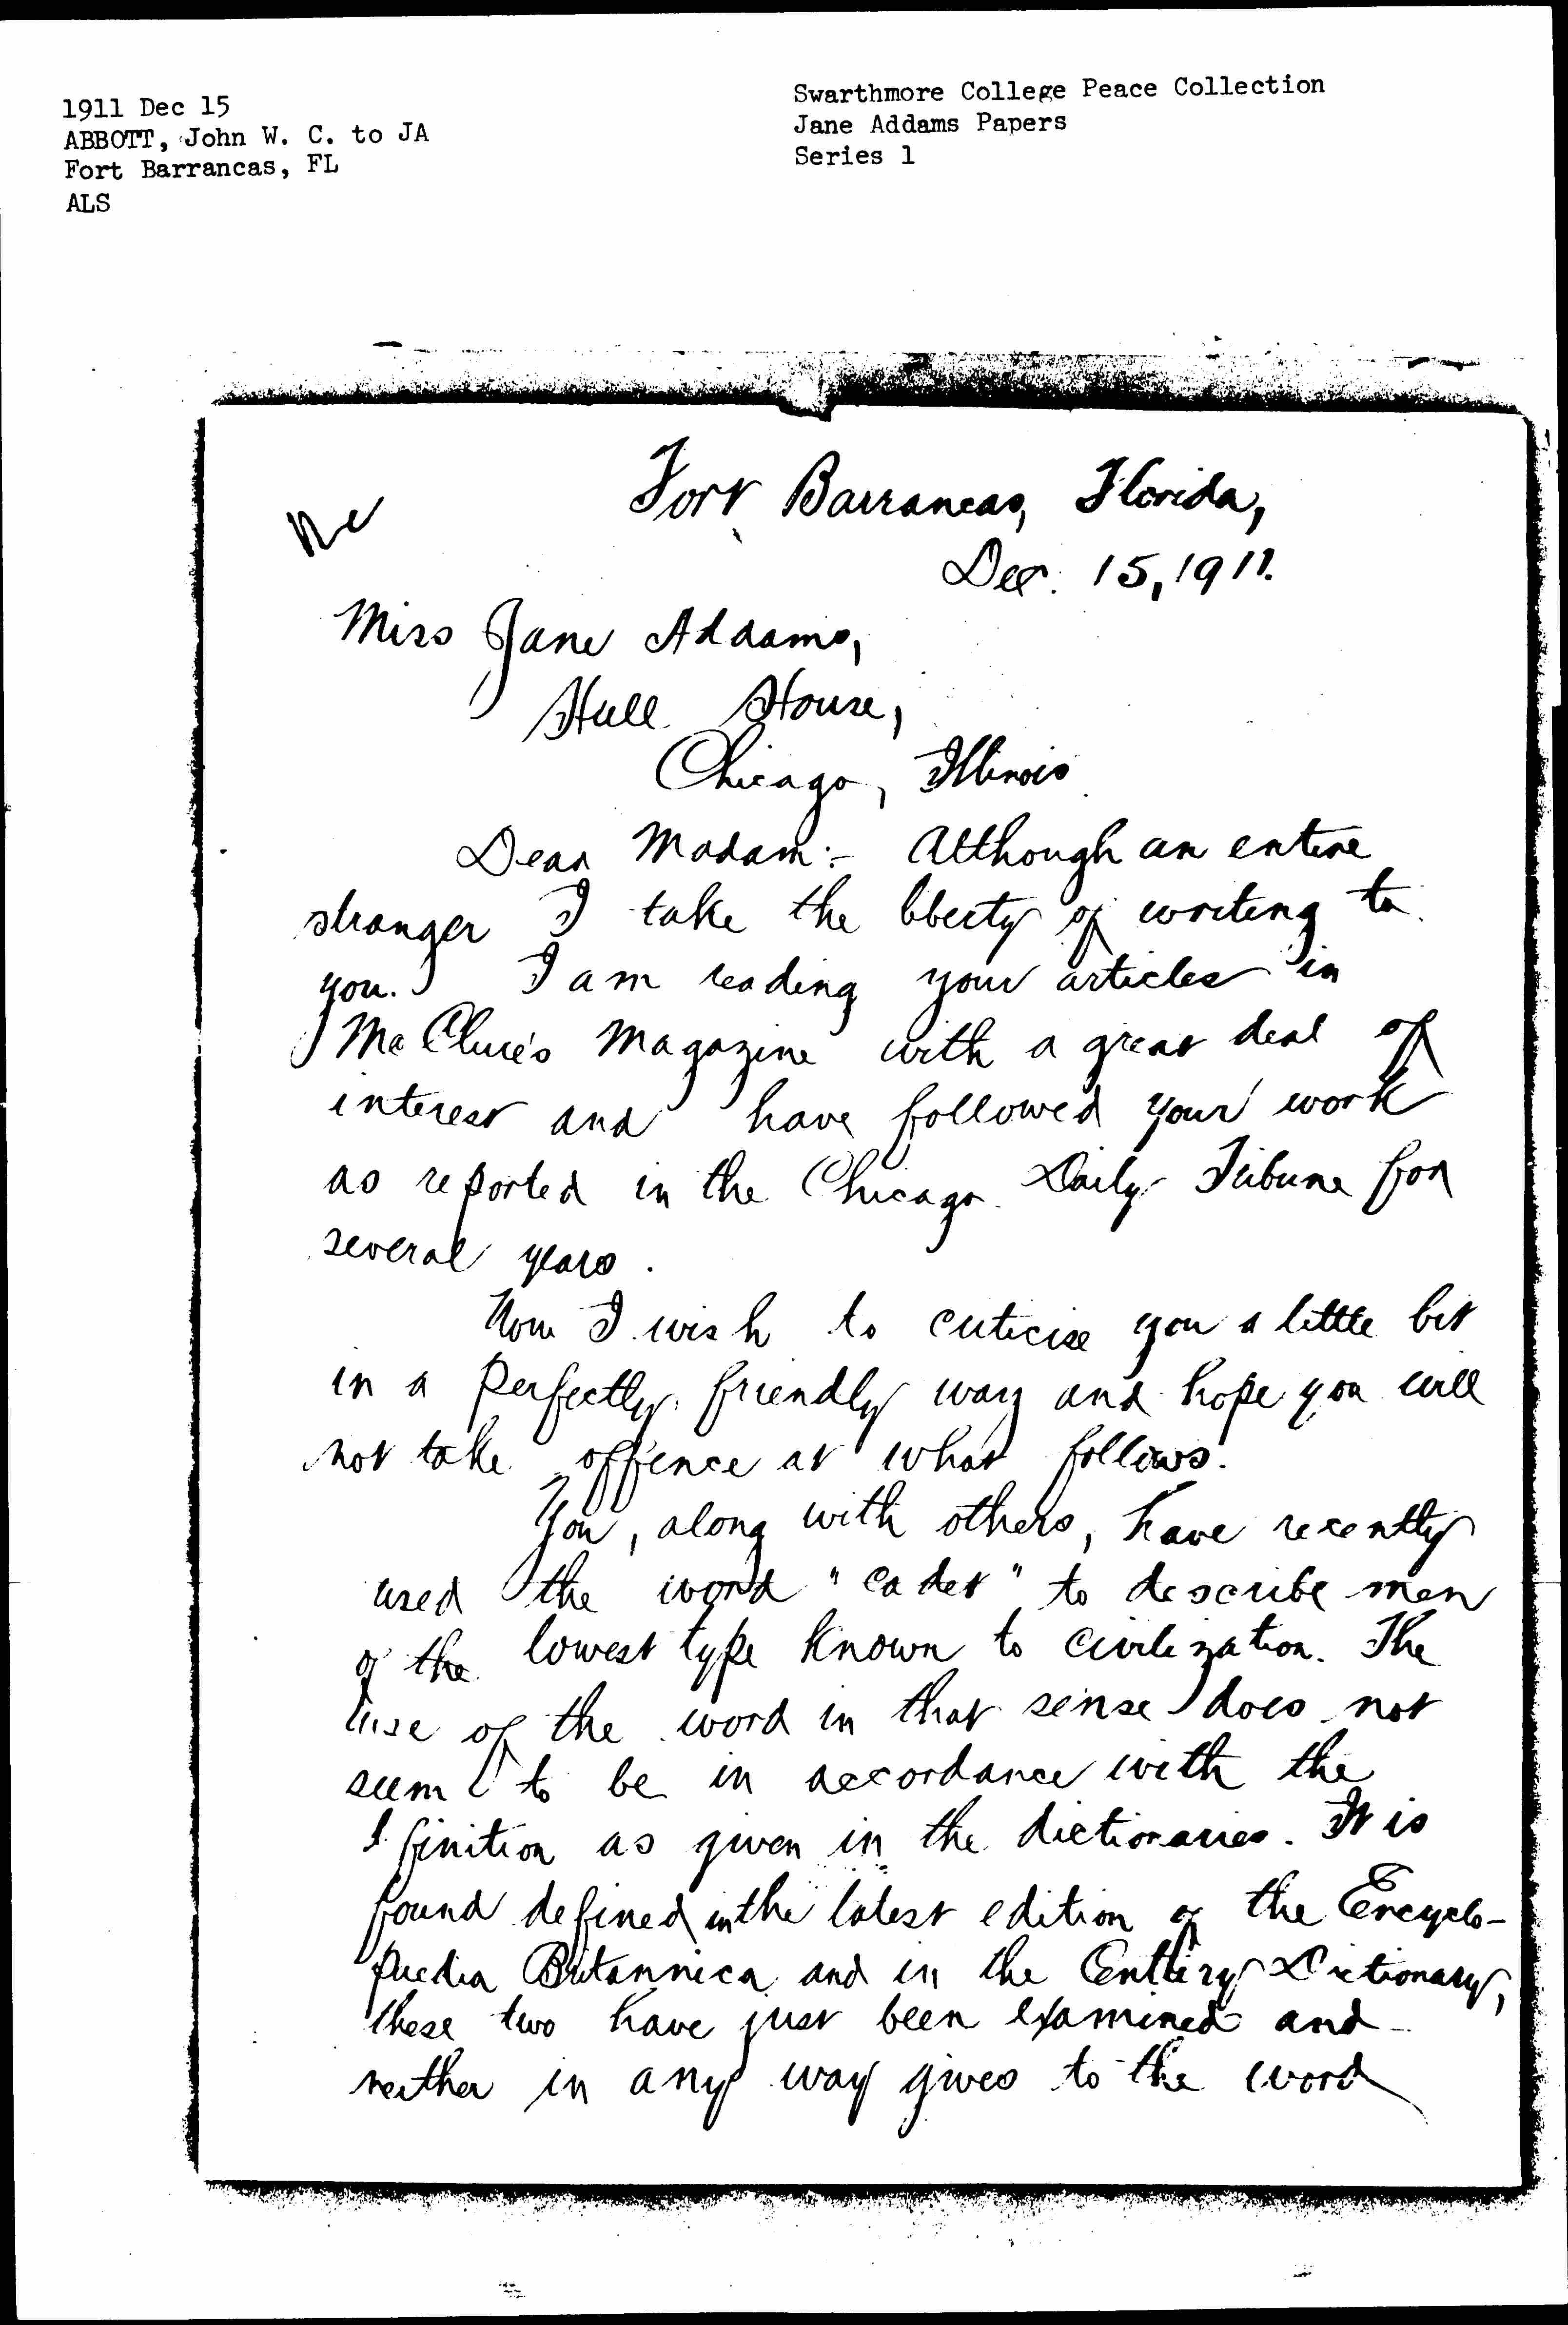 1911 Dec 15
ABBOTT, John W. C. to JA
Fort Barrancas, FL
ALS
Swarthmore College Peace Collection
Jane Addams Papers
Series 1
Fort Barrancas, Florida,
Dec. 15, 1911.
Miss Jane Addams,
Hull House,
Chicago, Illinois
Dear Madam:- Although an entire
stranger I take the liberty of writing to
you. I am reading your articles in
McClure's Magazine with a great deal of
interest and have followed your work
as reported in the Chicago Daily Tribune for
several years.
Now I wish to criticise you a little bit
in a perfectly friendly way and hope you will
not take offence at what follows.
You, along with others, have recently
used the word "cadet" to describe men
of the lowest type known to civilization. The
use of the word in that sense does not
seem to be in accordance with the
definition as given in the dictionaries. It is
found defined in the latest edition of the Encyclo-
paedia Britannica and in the Century Dictionary,
these two have just been examined and
neither in any way gives to the word